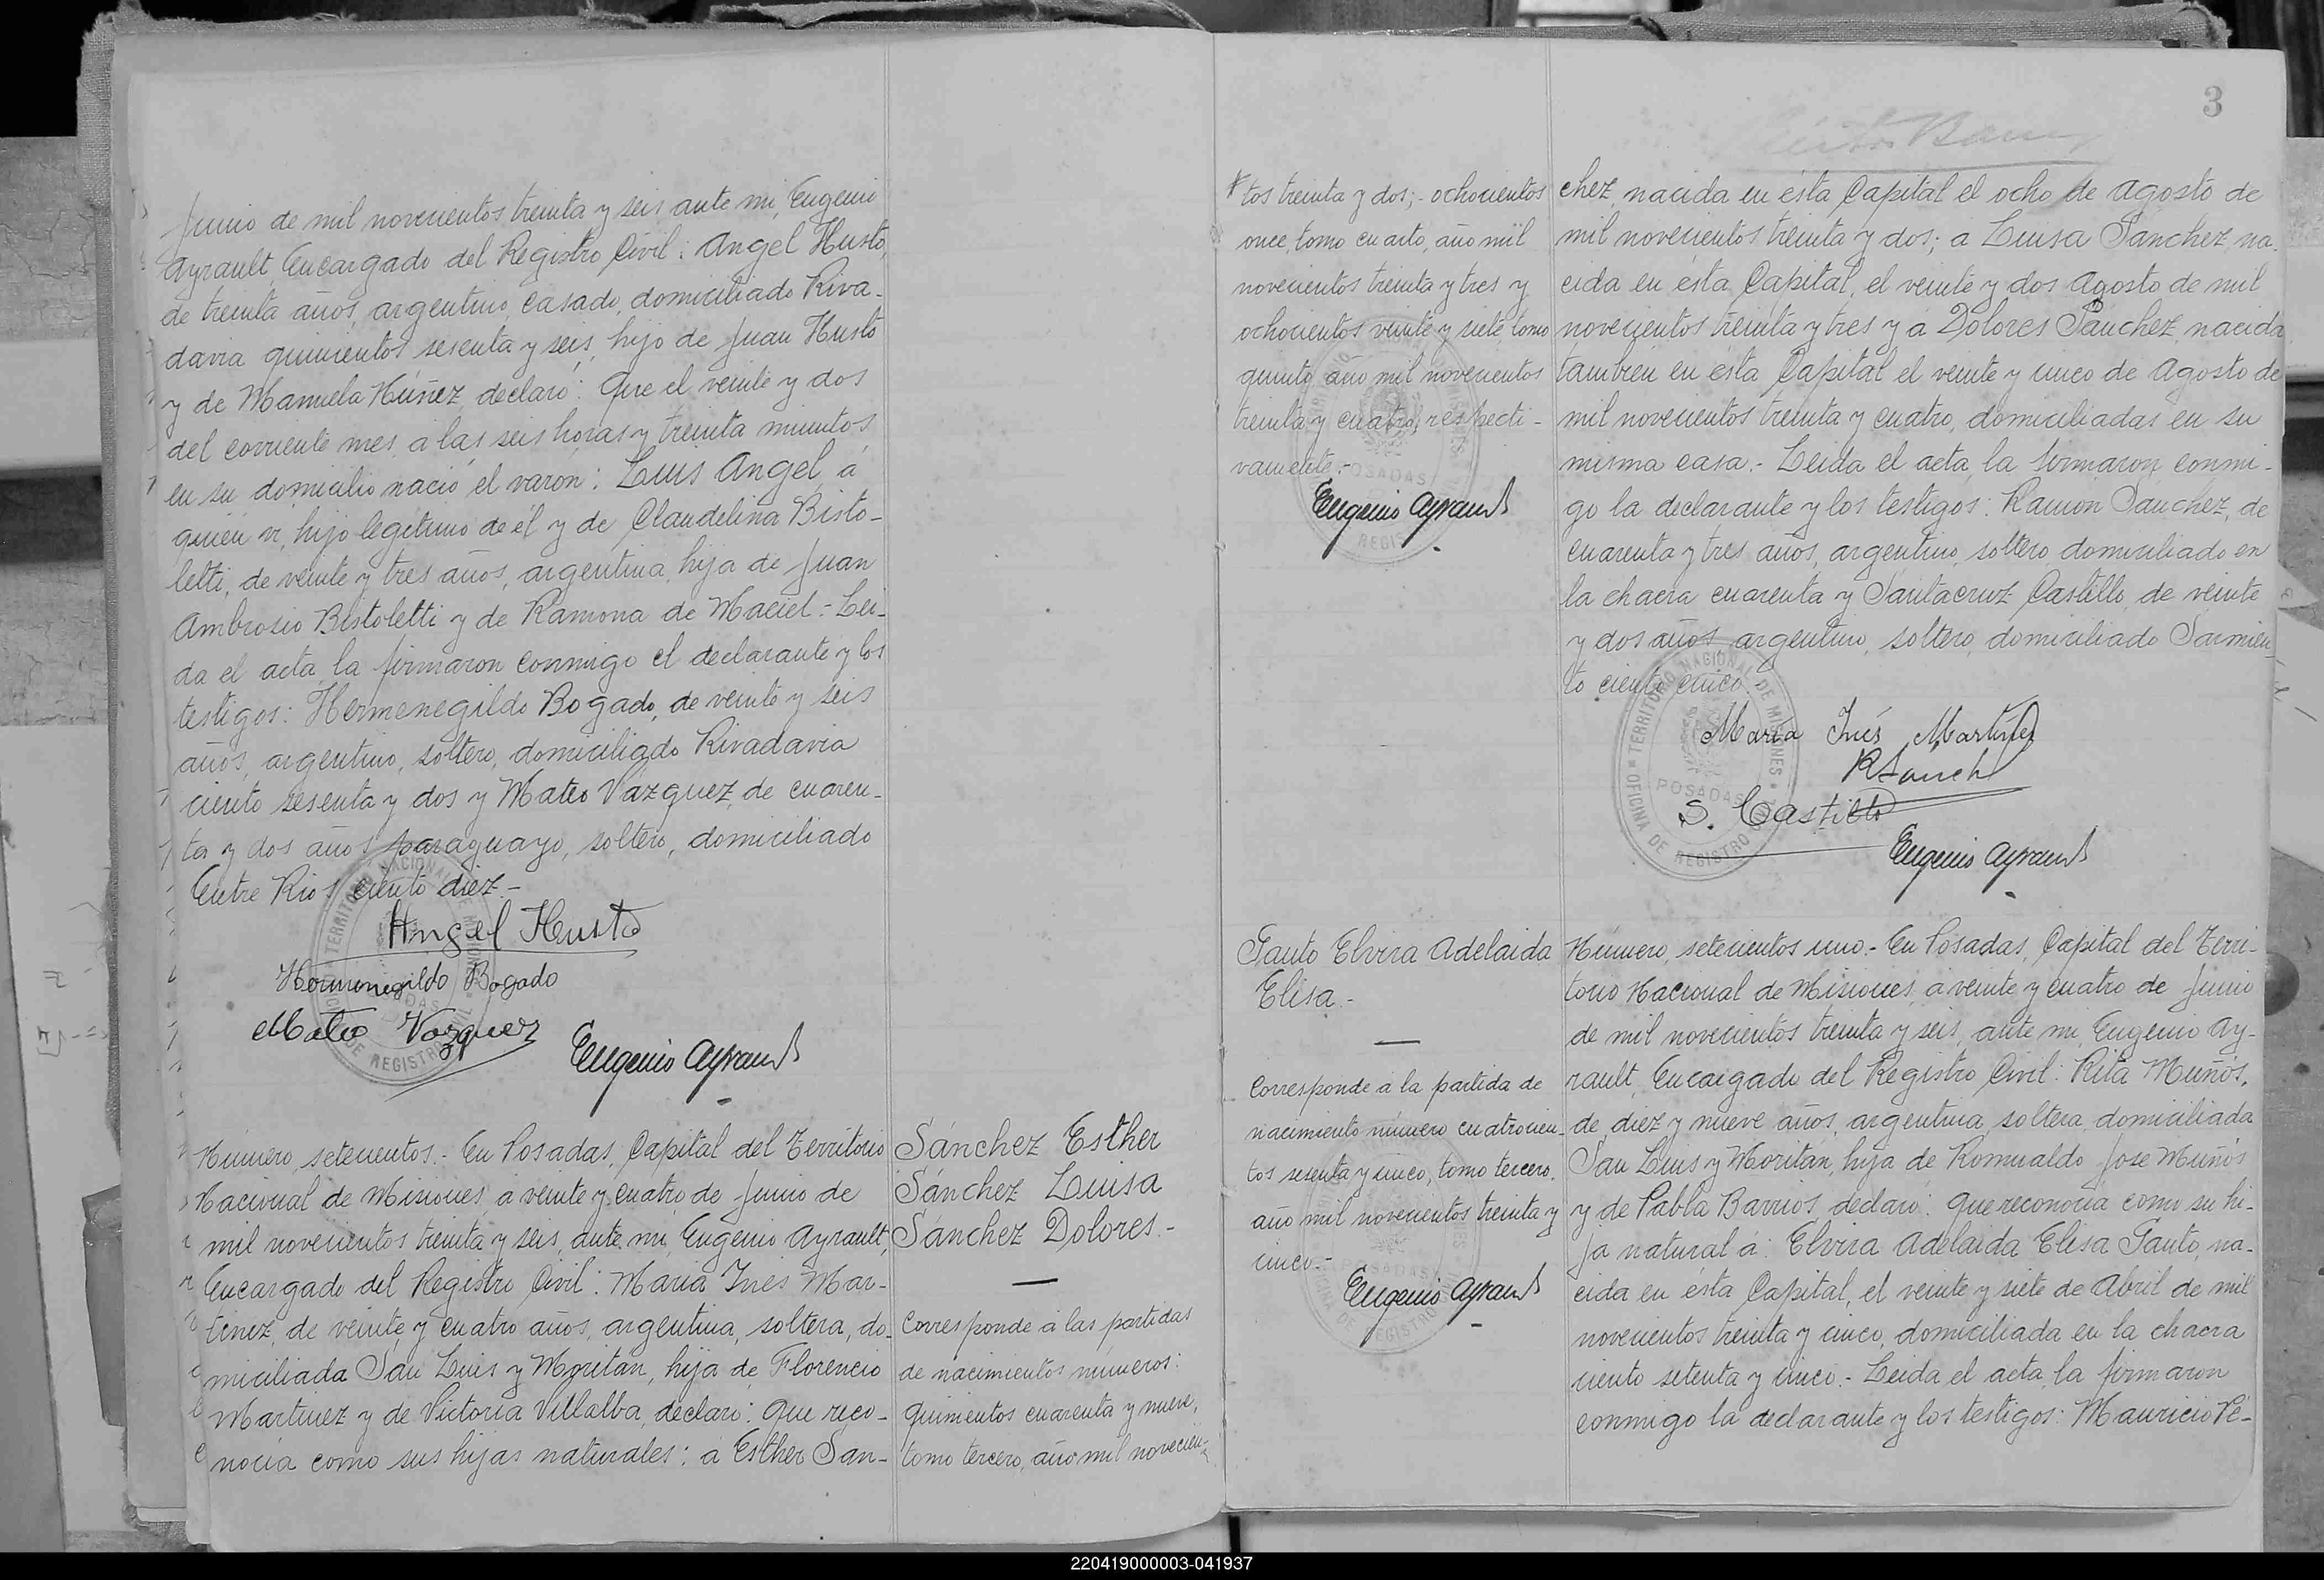 Junio de mil novecientos treinta y seis ante mi, Eugenio
Ayrault, Encargado del Registro Civil: Angel Husto,
de treinta años, argentino, casado, domiciliado Riva-
davia quinientos sesenta y seis, hijo de Juan Husto
y de Manuela Núñez, declaró: Que el veinte y dos
del corriente mes, a las seis horas y treinta minutos
en su domicilio nació el varon: Luis Angel, á
quien vi, hijo legitimo de él y de Claudelina Bisto-
letti, de veinte y tres años, argentina, hija de Juan
Ambrosio Bistoletti y de Ramona de Maciel.- Lei-
da el acta, la firmaron conmigo el declarante y los
testigos: Hermenegildo Bogado, de veinte y seis
años, argentino, soltero, domiciliado Rivadavia
ciento sesenta y dos y Mateo Vázquez, de cuaren-
ta y dos años paraguayo, soltero, domiciliado
Entre Rios ciento diez.-
Angel Husto
Hermenegildo Bogado
Mateo Vazquez
Eugenio Ayrault
Número, setecientos.- En Posadas, Capital del Territorio
Nacional de Misiones, a veinte y cuatro de Junio de
mil novecientos treinta y seis, ante mi, Eugenio Ayrault,
Encargado del Registro Civil: Maria Ines Mar-
tinez, de veinte y cuatro años, argentina, soltera, do-
miciliada San Luis y Moritán, hija de Florencio
Martinez y de Victoria Villalba, declaró: Que reco-
nocia como sus hijas naturales: a Esther Sán-
Sánchez Esther
Sánchez Luisa
Sánchez Dolores.-
Corresponde á las partidas
de nacimientos números:
quinientos cuarenta y nueve,
tomo tercero, año mil novecien-
tos treinta y dos;- ochocientos
once, tomo cuarto, año mil
novecientos treinta y tres y
ochocientos veinte y siete, tomo
quinto, año mil novecientos
treinta y cuatro, respecti-
vamente.-
Eugenio Ayrault
3
chez, nacida en ésta Capital el ocho de Agosto de
mil novecientos treinta y dos; a Luisa Sánchez, na-
cida en ésta Capital, el veinte y dos Agosto de mil
novecientos treinta y tres y a Dolores Sánchez, nacida
tambien en ésta Capital el veinte y cinco de Agosto de
mil novecientos treinta y cuatro, domiciliadas en su
misma casa.- Leida el acta, la firmaron conmi-
go la declarante y los testigos: Ramón Sánchez, de
cuarenta y tres años, argentino, soltero domiciliado en
la chacra cuarenta y Santacruz Castillo, de veinte
y dos años, argentino, soltero, domiciliado Sarmien-
to ciento cinco.
María Inés Martínez
R Sanchez
S. Castillo
Eugenio Ayrault
TERRITORIO NACIONAL DE MISIONES
OFICINA DE REGISTRO CIVIL
POSADAS
Santo Elvira Adelaida
Elisa.-
Corresponde á la partida de
nacimiento número cuatrocien-
tos sesenta y cinco, tomo tercero,
año mil novecientos treinta y
cinco.-
Eugenio Ayrault
Número, setecientos uno.- En Posadas, Capital del Terri-
torio Nacional de Misiones, a veinte y cuatro de Junio
de mil novecientos treinta y seis, ante mi, Eugenio Ay-
rault, Encargado del Registro Civil: Rita Muñós,
de diez y nueve años, argentina, soltera, domiciliada
San Luis y Moritán, hija de Romualdo José Muñós
y de Pabla Barrios, declaró: Que reconocia como su hi-
ja natural á: Elvira Adelaida Elisa Santo, na-
cida en ésta Capital, el veinte y siete de Abril de mil
novecientos treinta y cinco, domiciliada en la chacra
ciento setenta y cinco.- Leida el acta, la firmaron
conmigo la declarante y los testigos: Mauricio Pe-
220419000003-041937